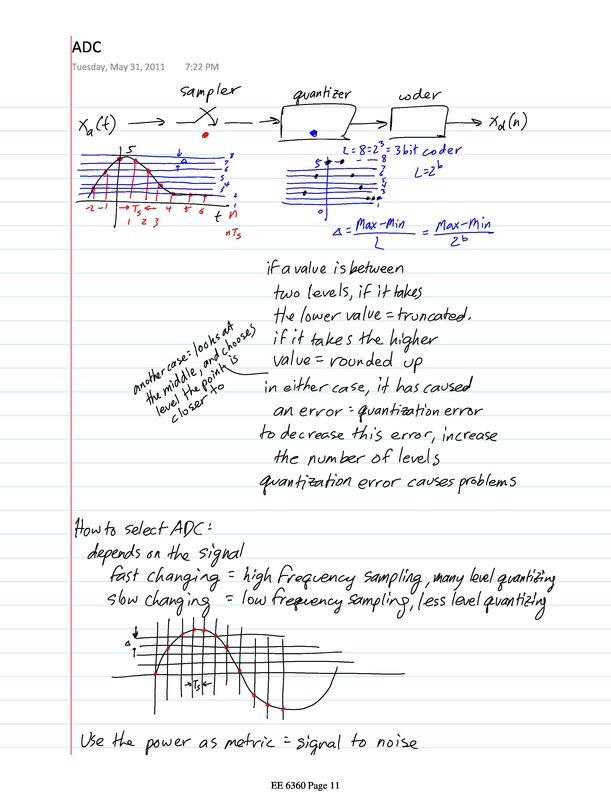 ADC
Tuesday, May 31, 2011 7:22 PM
sampler quantizer coder
Xa(t) Xd(n)
5 Δ 8 7 6 5 4 2 1
-2 -1 Ts 1 2 3 4 5 6 t n
nTs
L=8=2³=3bit coder
5 8 7 6 5 4 3 2 1 0
L=2^b
Δ = Max-Min / L = Max-Min / 2^b
if a value is between
two levels, if it takes
the lower value = truncated.
if it takes the higher
value = rounded up
another case = looks at
the middle, and chooses
level the point is
closer to
in either case, it has caused
an error = quantization error
to decrease this error, increase
the number of levels
quantization error causes problems
How to select ADC:
depends on the signal
fast changing = high frequency sampling, many level quantizing
slow changing = low frequency sampling, less level quantizing
Δ
Ts
Use the power as metric = signal to noise
EE 6360 Page 11